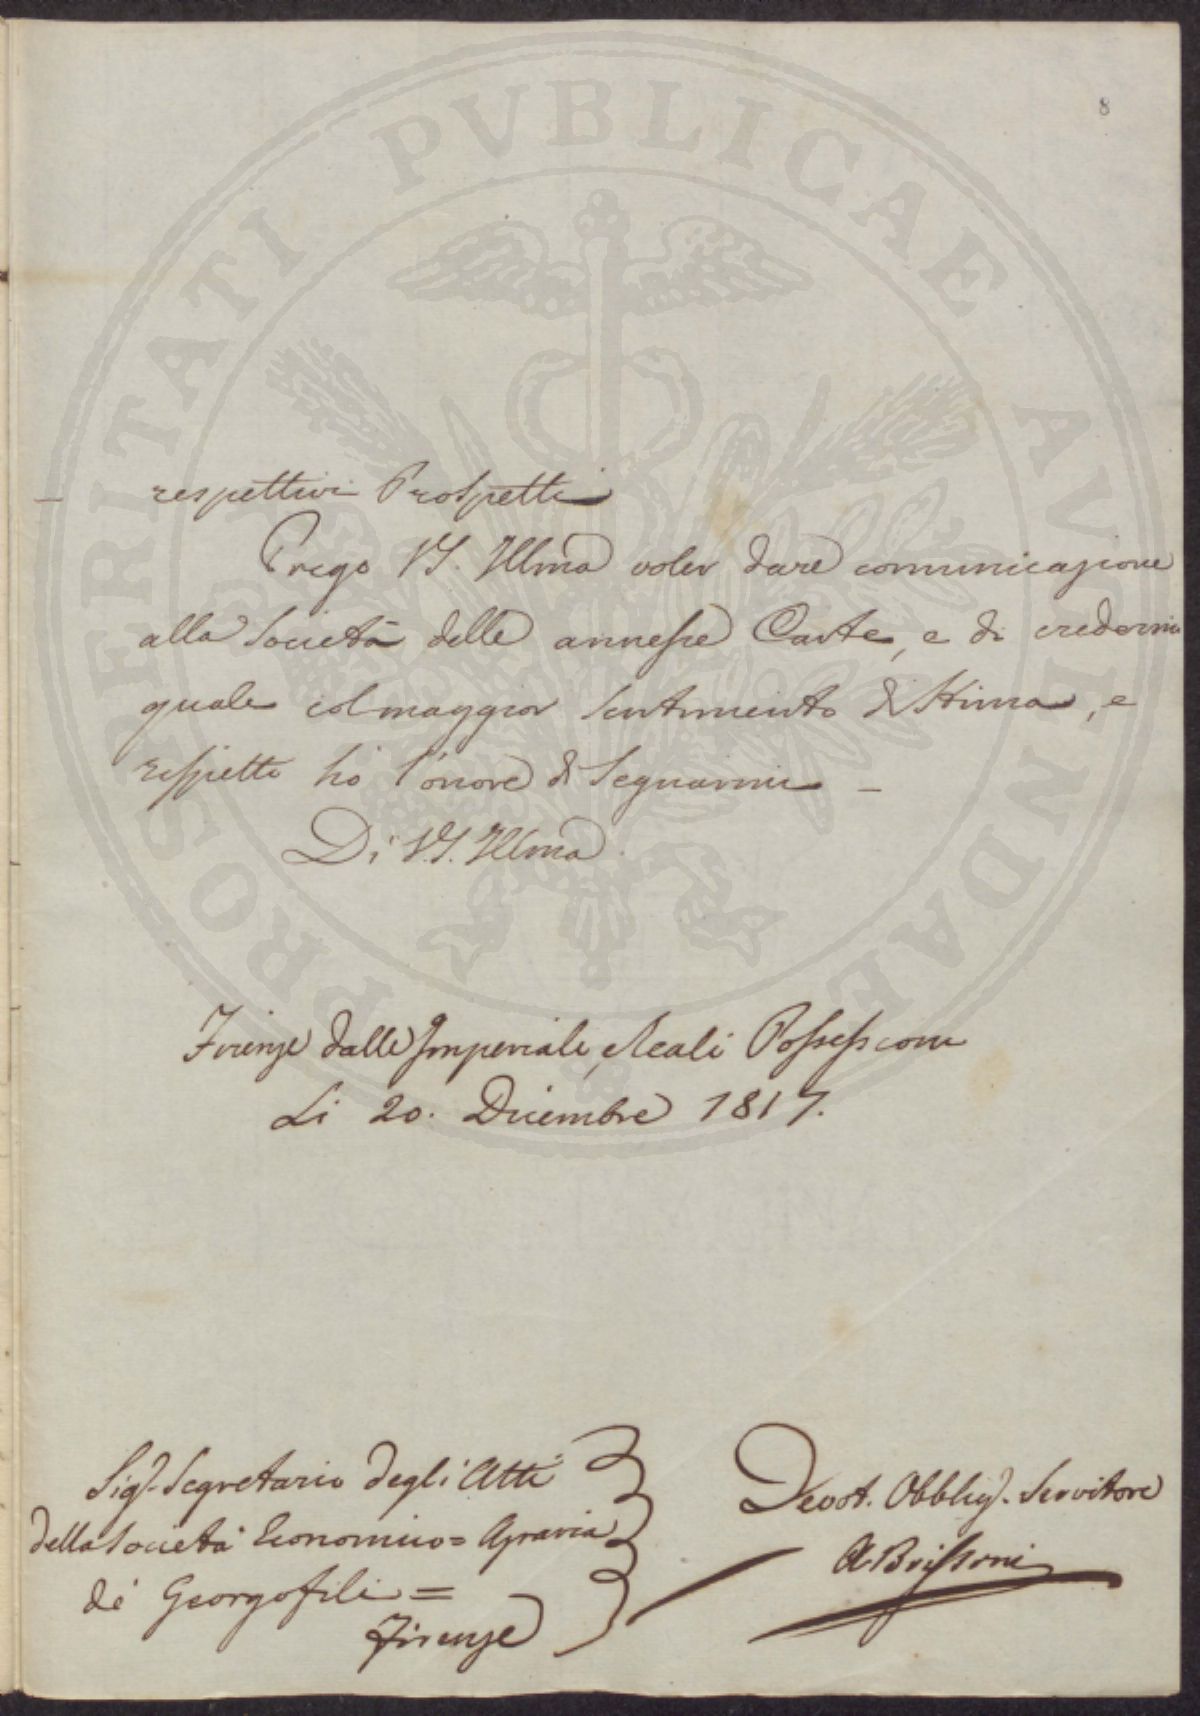 8
PROSPERITATI PVBLICAE AVGENDAE
respettivi Prospetti
Prego VS. Illma voler dare comunicazione
alla Società delle annesse Carte, e di credermi
quale col maggior sentimento di Stima, e
rispetto hò l'onore di Segnarmi –
Di V.S. Illma
Firenze dalle Imperiali, e Reali Possessioni
Li 20. Dicembre 1817.
Sigr. Segretario degli Atti
della Società Economico = Agraria
dei Georgofili =
Firenze
Devot. Obblig. Servitore
A Brissoni